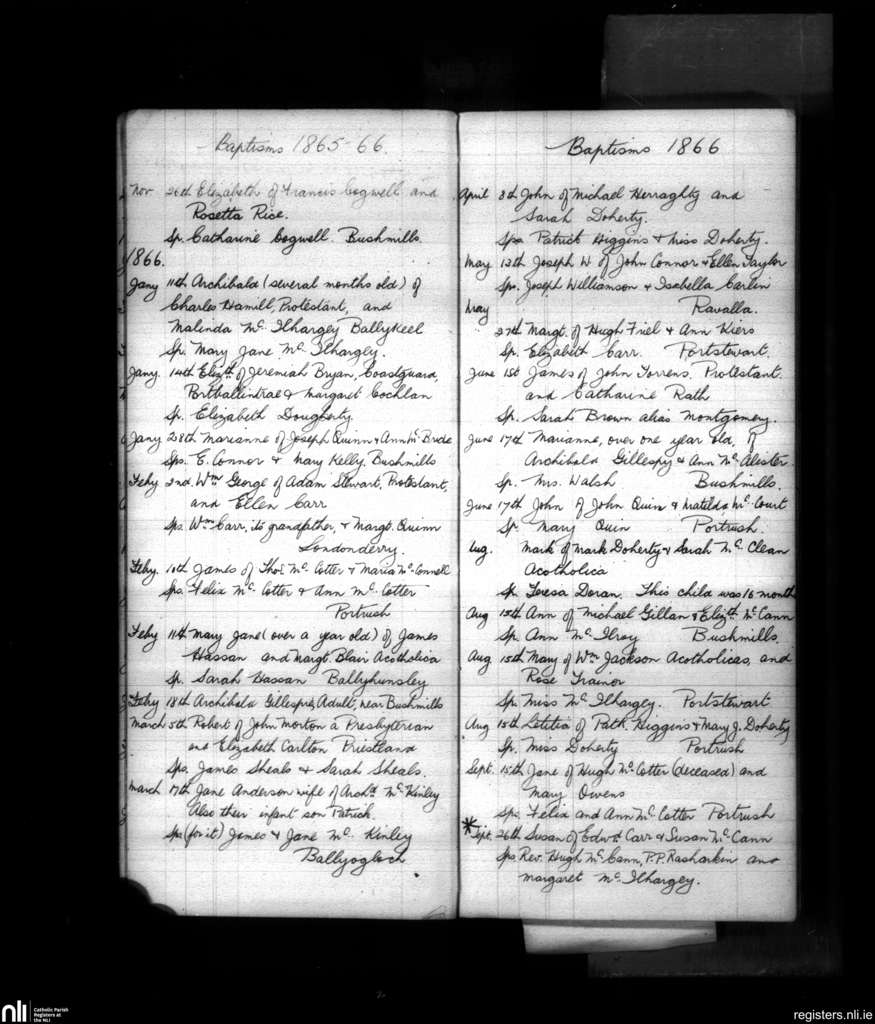 Baptisms 1865-66.
Nov 26th Elizabeth of Francis Cogwell and
Rosetta Rice.
Sp. Catharine Cogwell. Bushmills.
1866.
Jany 11th Archibald (several months old) of
Charles Hamill, Protestant, and
Malinda Mc Ilhargey Ballykeel
Sp. Mary Jane Mc Ilhargey.
Jany. 14th Elizth of Jeremiah Bryan, Coastguard,
Portballintrae & Margaret Cochlan
Sp. Elizabeth Dougherty.
Jany 28th Marianne of Joseph Quinn & Ann Mc Bride
Sps. E. Connor & Mary Kelly, Bushmills
Feby 2nd. Wm George of Adam Stewart, Protestant,
and Ellen Carr
Sps. Wm Carr, its grandfather, & Margt. Quinn
Londonderry.
Feby. 10th James of Thos Mc Cotter & Maria Mc Connell
Sps. Felix Mc Cotter & Ann Mc Cotter
Portrush
Feby 11th Mary Jane (over a year old) of James
Hassan and Margt. Blair Acotholica
Sp. Sarah Hassan Ballyhunsley
Feby 18th Archibald Gillespie, Adult, near Bushmills
March 5th Robert of John Morton a Presbyterian
and Elizabeth Carlton Priestland
Sps. James Sheals & Sarah Sheals.
March 17th Jane Anderson wife of Archd Mc Kinley
Also their infant son Patrick.
Sps (for it) James & Jane Mc Kinley
Ballyogloch
Baptisms 1866
April 8th John of Michael Herraghty and
Sarah Doherty.
Sps Patrick Higgins & Miss Doherty.
May 12th Joseph W of John Connor & Ellen Taylor
Sps. Joseph Williamson & Isabella Carlin
Ravalla.
May
27th Margt. of Hugh Friel & Ann Kiers
Sp. Elizabeth Carr. Portstewart.
June 1st James of John Torrens, Protestant.
and Catharine Rath
Sp. Sarah Brown alias Montgomery.
June 17th Marianne, over one year old, of
Archibald Gillespy & Ann Mc Alister.
Sp. Mrs. Walsh Bushmills.
June 17th John of John Quin & Matilda Mc Court
Sp Mary Quin Portrush.
Aug. Mark of Mark Doherty & Sarah Mc Clean
Acotholica
Sp. Teresa Doran. This child was 16 months
Aug 15th Ann of Michael Gillan & Elizth Mc Cann
Sp. Ann Mc Ilroy Bushmills.
Aug 15th Mary of Wm Jackson Acotholicas, and
Rose Trainor
Sp. Miss Mc Ilhargey. Portstewart
Aug 15th Letitia of Patk. Higgins & Mary J. Doherty
Sp. Miss Doherty Portrush
Sept. 15th Jane of Hugh Mc Cotter (deceased) and
Mary Owens
Sps. Felix and Ann Mc Cotter Portrush
* Sept. 26th Susan of Edwd Carr & Susan Mc Cann
Sps. Rev. Hugh Mc Cann, P.P. Rasharkin and
Margaret Mc Ilhargey.
nli
Catholic Parish
Registers at
the NLI
registers.nli.ie